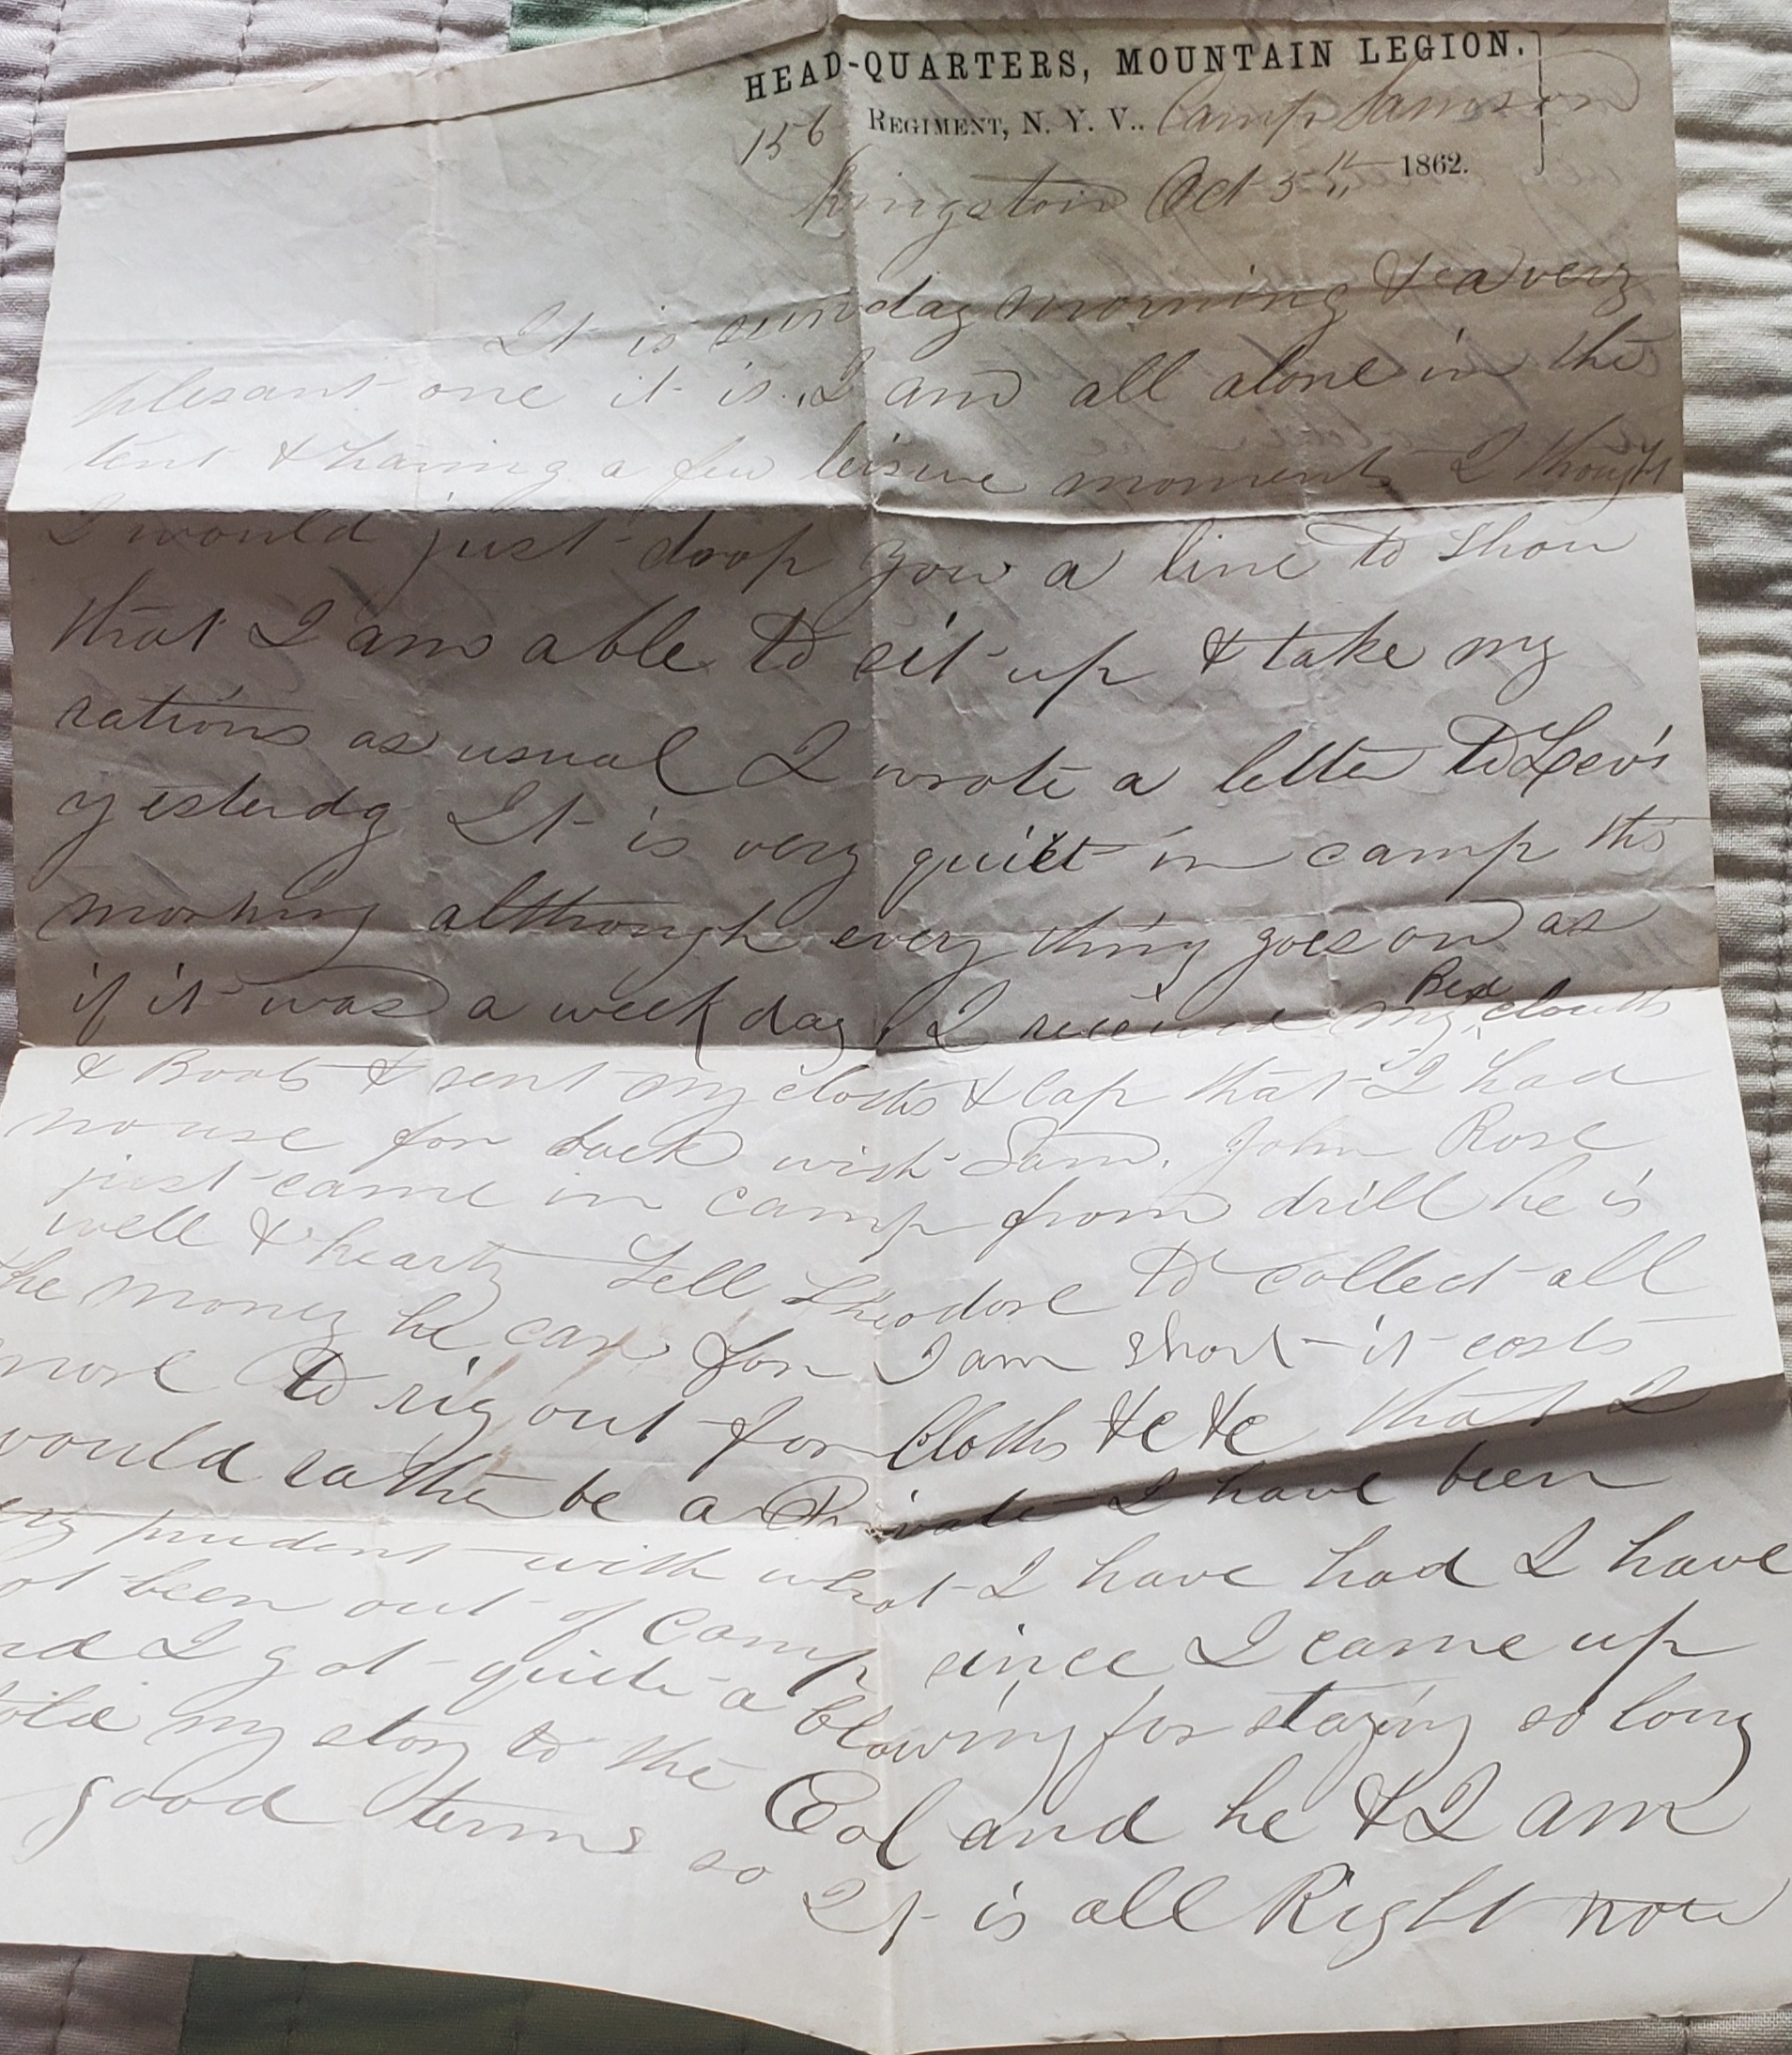 HEAD-QUARTERS, MOUNTAIN LEGION.
156 REGIMENT, N. Y. V.. Camp Samson
Kingston Oct 5th 1862.
It is sunday morning & a very
plesant one it is. I am all alone in the
tent & having a few leisure moments I thought
I would just drop you a line to show
that I am able to sit up & take my
rations as usual I wrote a letter to Levi
yesterdy It is very quiet in camp this
morning although every thing goes on as
if it was a week day. I received my Box clouths
& Boots & sent my cloths & Cap that I had
no use for back with Sam. John Rose
just came in camp from drill he is
well & hearty Tell Theodore to collect all
the money he can for I am short it costs
more to rig out for Cloths &c &c that I
would rather be a Private I have been
prudent with what I have had I have
been out of Camp since I came up
I got quite a blowing for staying so long
my story to the Col and he & I am
good terms so It is all Right now